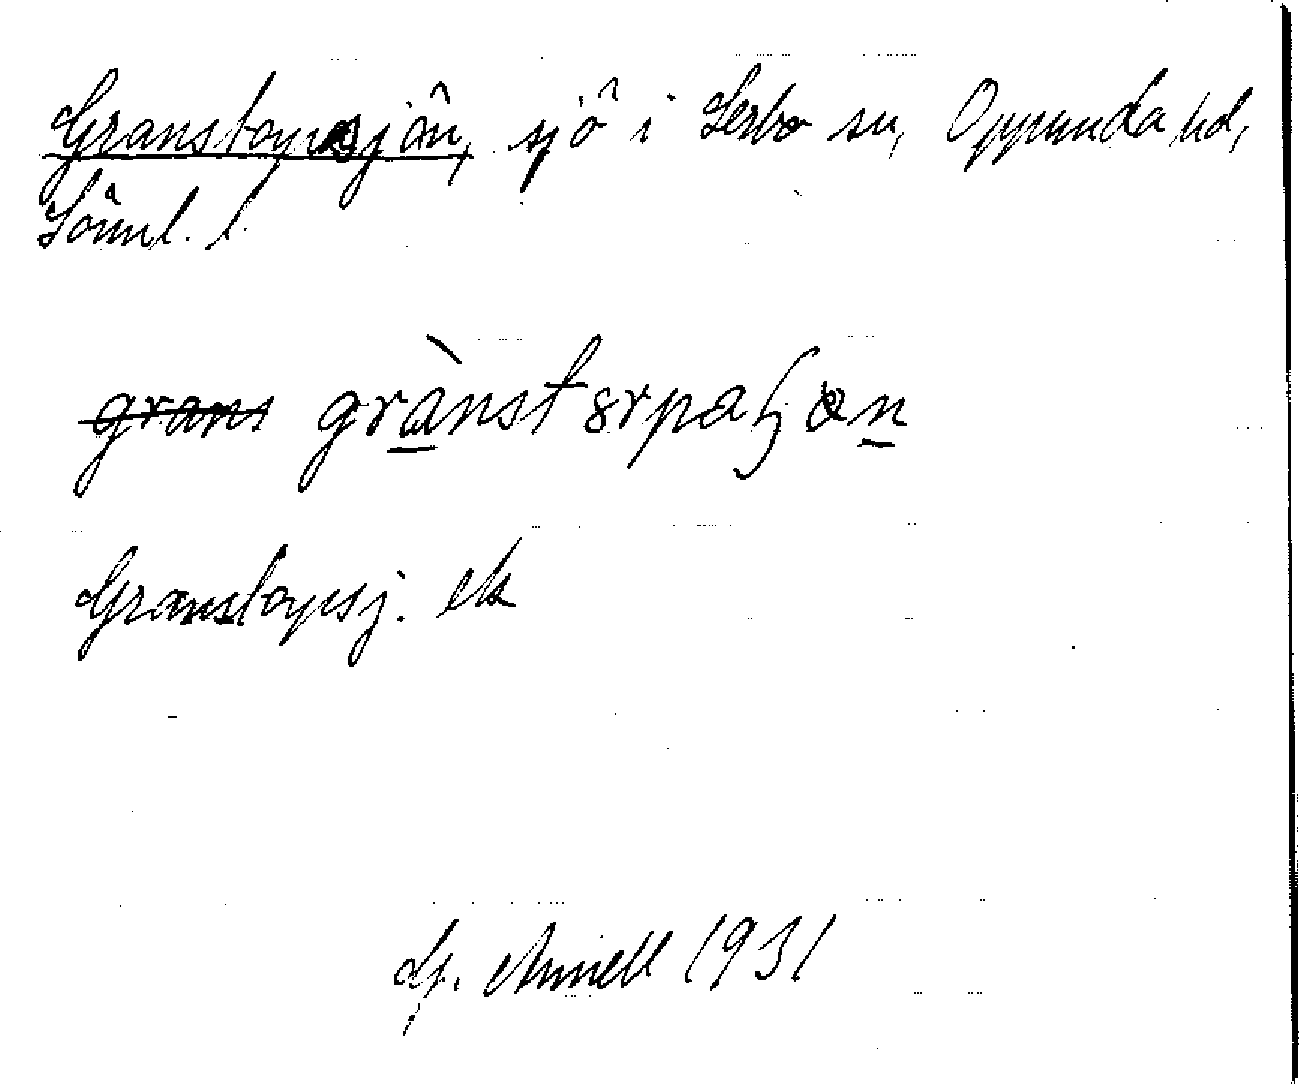 Granstorpasjön, sjö i Lerbo sn, Oppunda hd,
Sörml. l.
grans grànstorpaʃön
Granstorpsj. ek
1931